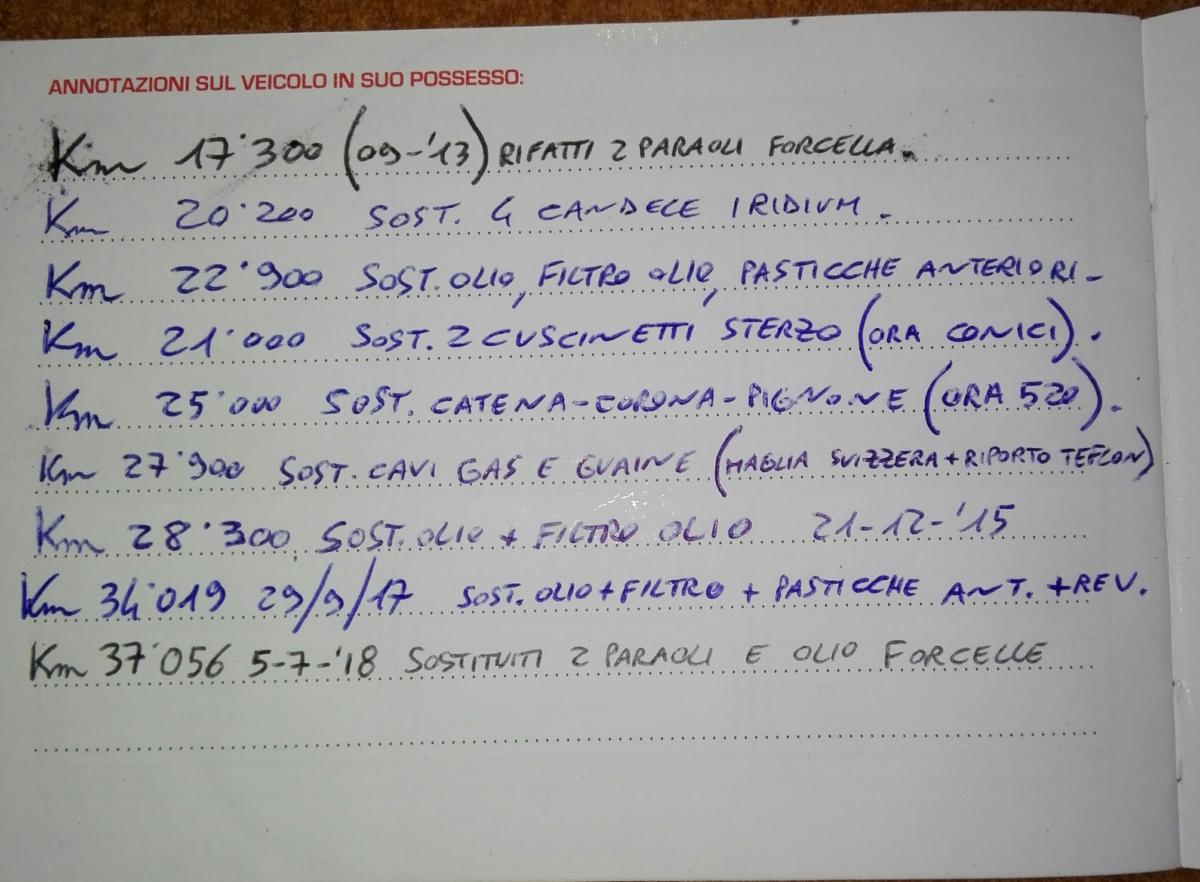 ANNOTAZIONI SUL VEICOLO IN SUO POSSESSO:
Km 17'300 (09-'13) RIFATTI 2 PARAOLI FORCELLA.
Km 20'200 SOST. 4 CANDELE IRIDIUM.
Km 22'900 SOST. OLIO, FILTRO OLIO, PASTICCHE ANTERIORI-
Km 21'000 SOST. 2 CUSCINETTI STERZO (ORA CONICI).
Km 25'000 SOST. CATENA-CORONA-PIGNONE (ORA 520).
Km 27'900 SOST. CAVI GAS E GUAINE (MAGLIA SVIZZERA+RIPORTO TEFLON)
Km 28'300 SOST. OLIO + FILTRO OLIO 21-12-'15
Km 34'019 29/9/17 SOST. OLIO+FILTRO + PASTICCHE ANT. +REV.
Km 37'056 5-7-'18 SOSTITUITI 2 PARAOLI E OLIO FORCELLE